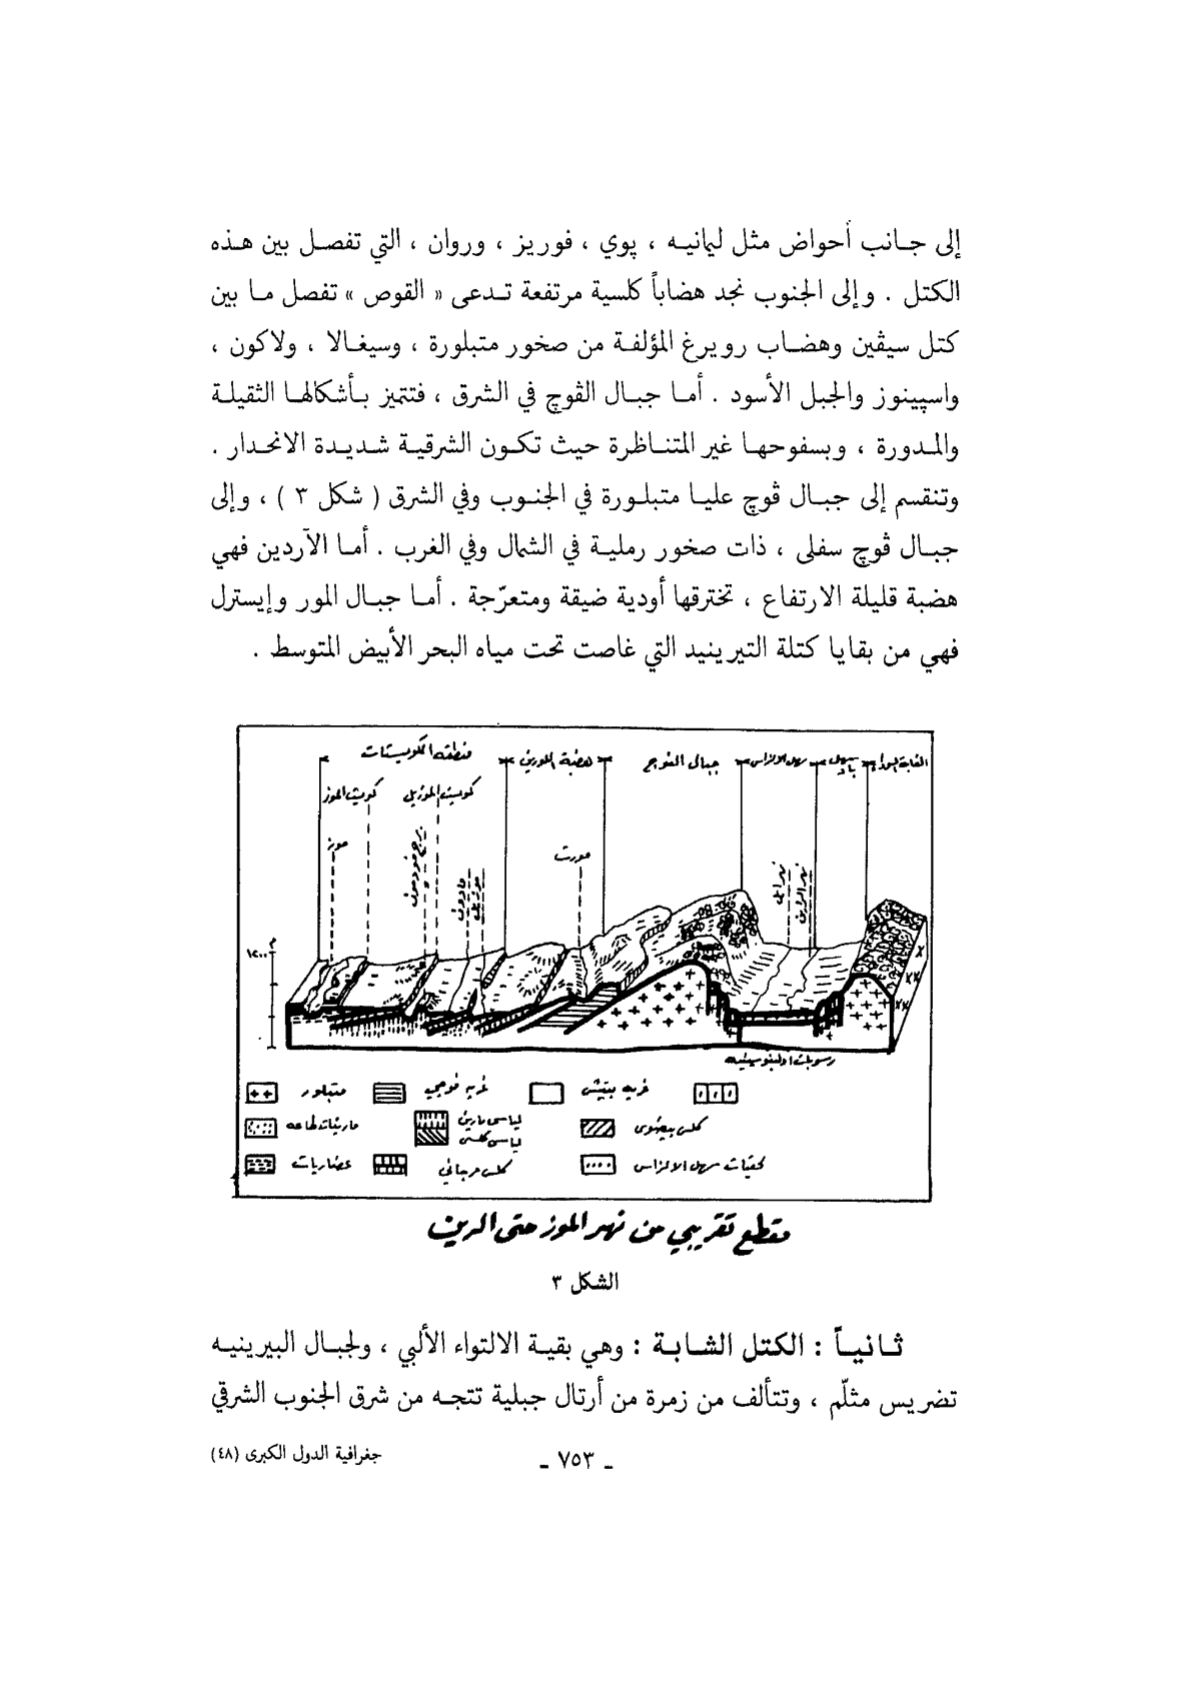 إلى جانب أحواض مثل ليمانيه ، پوي ، فوريز ، وروان ، التي تفصل بين هذه
الكتل . وإلى الجنوب نجد هضاباً كلسية مرتفعة تدعى « القوص » تفصل ما بين
كتل سيڤين وهضاب رويرغ المؤلفة من صخور متبلورة ، وسيغالا ، ولاكون ،
واسپينوز والجبل الأسود . أما جبال الڤوج في الشرق ، فتتميز بأشكالها الثقيلة
والمدورة ، وبسفوحها غير المتناظرة حيث تكون الشرقية شديدة الانحدار .
وتنقسم إلى جبال ڤوج عليا متبلورة في الجنوب وفي الشرق ( شكل ٣ ) ، وإلى
جبال ڤوج سفلى ، ذات صخور رملية في الشمال وفي الغرب . أما الآردين فهي
هضبة قليلة الارتفاع ، تخترقها أودية ضيقة ومتعرّجة . أما جبال المور وإيسترل
فهي من بقايا كتلة التيرينيد التي غاصت تحت مياه البحر الأبيض المتوسط .
منطقة الكويستات
هضبة اللورين
جبال الفوج
سهل الالزاس
سهل باد
الغابة السوداء
كويست الموز
كويست الموزيل
موز
مورت
نهر ايل
نهر الراين
م
١٢٠٠
متبلور
غريه فوجي
مارنيات لماعه
لياسي مارني
لياسي كلسي
كلس بيضوي
غضاريات
كلس مرجاني
لحقيات سهل الالزاس
مقطع تقريبي من نهر الموز حتى الرين
الشكل ٣
ثانياً : الكتل الشابة : وهي بقية الالتواء الألبي ، ولجبال البيرينيه
تضريس مثلّم ، وتتألف من زمرة من أرتال جبلية تتجه من شرق الجنوب الشرقي
ـ ٧٥٣ ـ
جغرافية الدول الكبرى (٤٨)